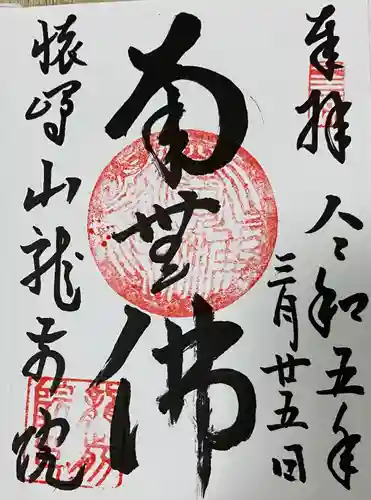 奉拝
令和五年
三月廿五日
南無佛
山龍
院